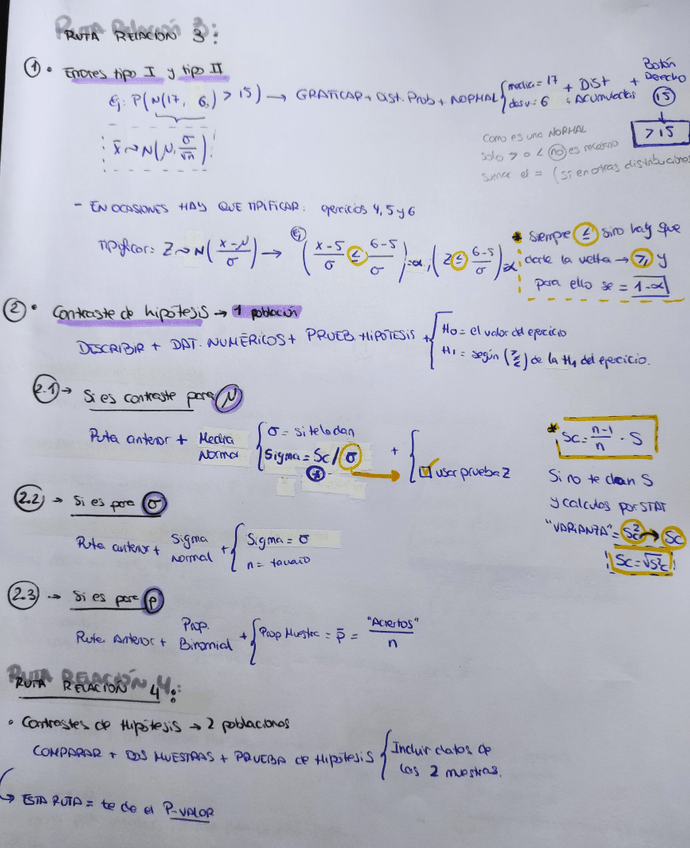 RUTA RELACIÓN 3:
① • Errores tipo I y tipo II
Ej: P(N(17, 6) > 15) → GRAFICAR + Dist. Prob + NORMAL { media = 17 desv = 6 + Dist Acumuladas + Botón Derecho (15)
> 15
x̄ ~ N(μ, σ/√n)
Como es una NORMAL
solo > o < (no) es necesario
sumar el = (si en otras distribuciones
- EN OCASIONES HAY QUE TIPIFICAR: ejercicios 4, 5 y 6
Tipificar: Z ~ N(x-μ/σ) → Ej (x-5/σ ≤ 6-5/σ) = α, (Z ≤ 6-5/σ) α
* Siempre ≤ sino hay que
darle la vuelta → ≥ y
para ello se = 1-α
② • Contraste de hipótesis → 1 población
DESCRIBIR + DAT. NUMÉRICOS + PRUEB HIPÓTESIS + { H₀ = el valor del ejercicio
H₁ = según (≥/≤) de la H₁ del ejercicio.
2.1) → Si es contraste para μ
Ruta anterior + Media Normal { σ = si te lo dan
Sigma = Sc / σ
*
+ { ☑ usar prueba Z
* Sc = n-1/n · S
Si no te dan S
y calculas por STAT
"VARIANZA" = Sc² → Sc
Sc = √S²c
2.2) → Si es para σ
Ruta anterior + Sigma Normal + { Sigma = σ
n = tamaño
2.3) → Si es para p
Ruta Anterior + Prop. Binomial + { Prop Muestra = p̄ = "Aciertos"/n
RUTA RELACIÓN 4:
• Contrastes de Hipótesis → 2 poblaciones
COMPARAR + DOS MUESTRAS + PRUEBA de Hipótesis { Incluir datos de
las 2 muestras.
↳ ESTA RUTA = te da el P-VALOR